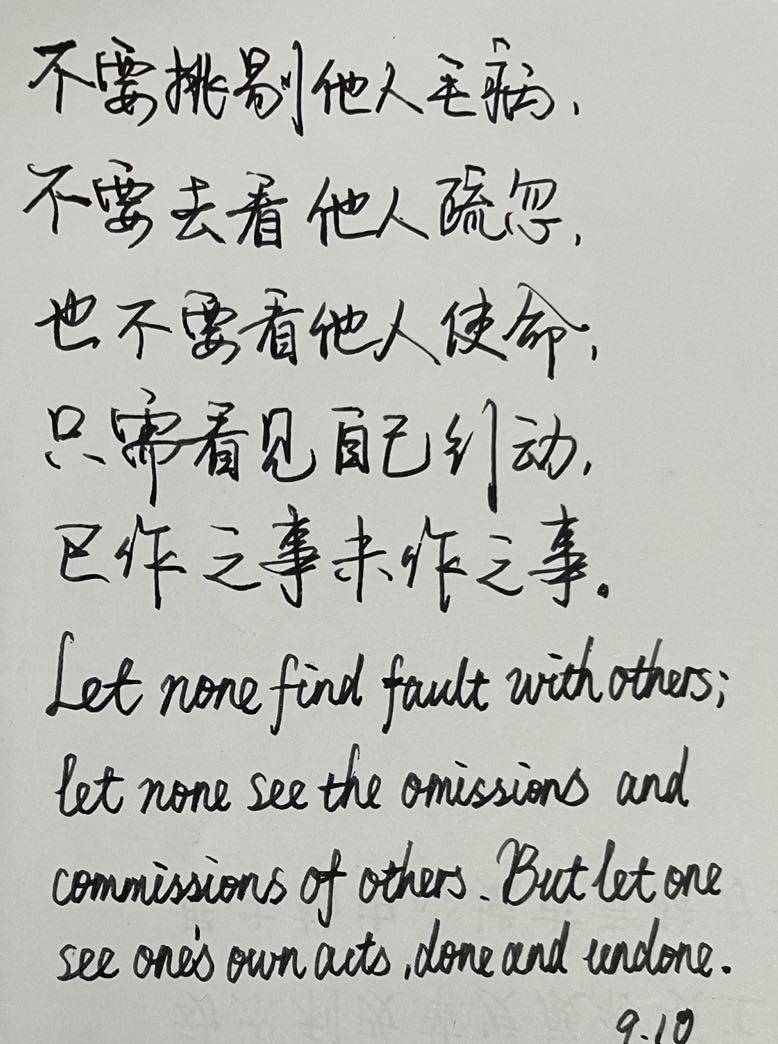 不要挑剔他人毛病,
不要去看他人疏忽,
也不要看他人使命,
只需看见自己行动,
已作之事未作之事。
Let none find fault with others;
let none see the omissions and
commissions of others. But let one
see one's own acts, done and undone.
9.10